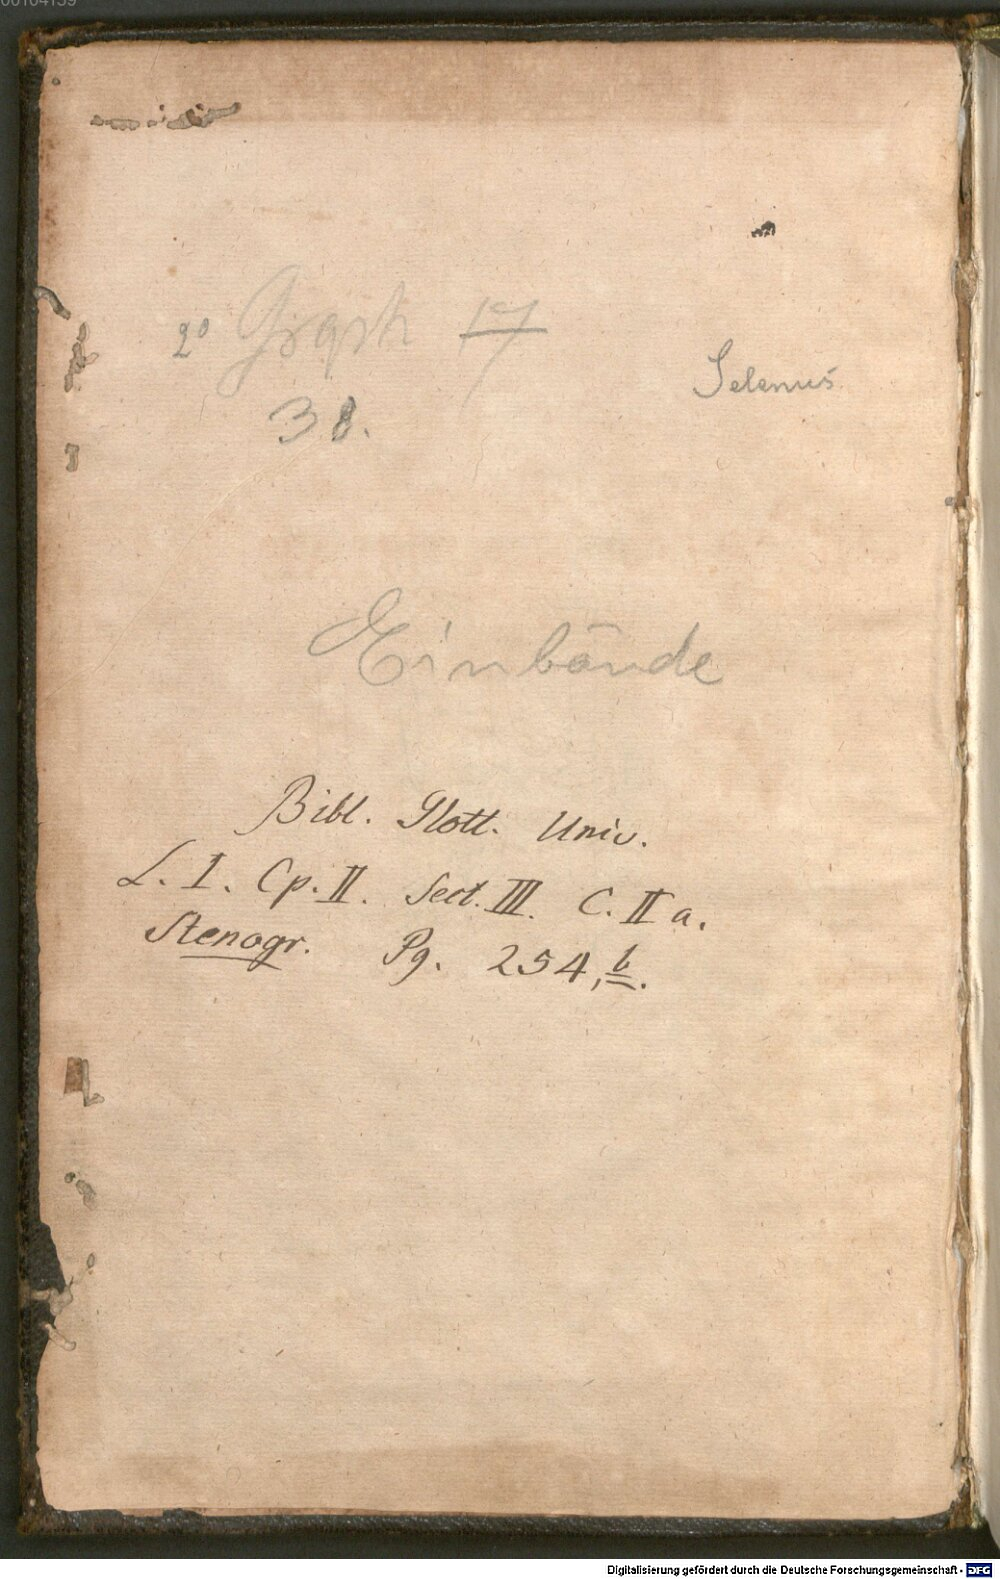 2° Graph 17
Selenus
38.
Einbände
Bibl. Glott. Univ.
L. I. Cp. II. Sect. III. C. II a.
Stenogr. Pg. 254, b.
Digitalisierung gefördert durch die Deutsche Forschungsgemeinschaft - DFG